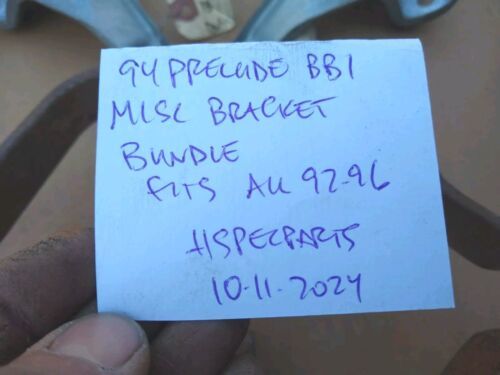 94 PRELUDE BB1
MISC BRACKET
BUNDLE
FITS ALL 92-96
HSPECPARTS
10-11-2024